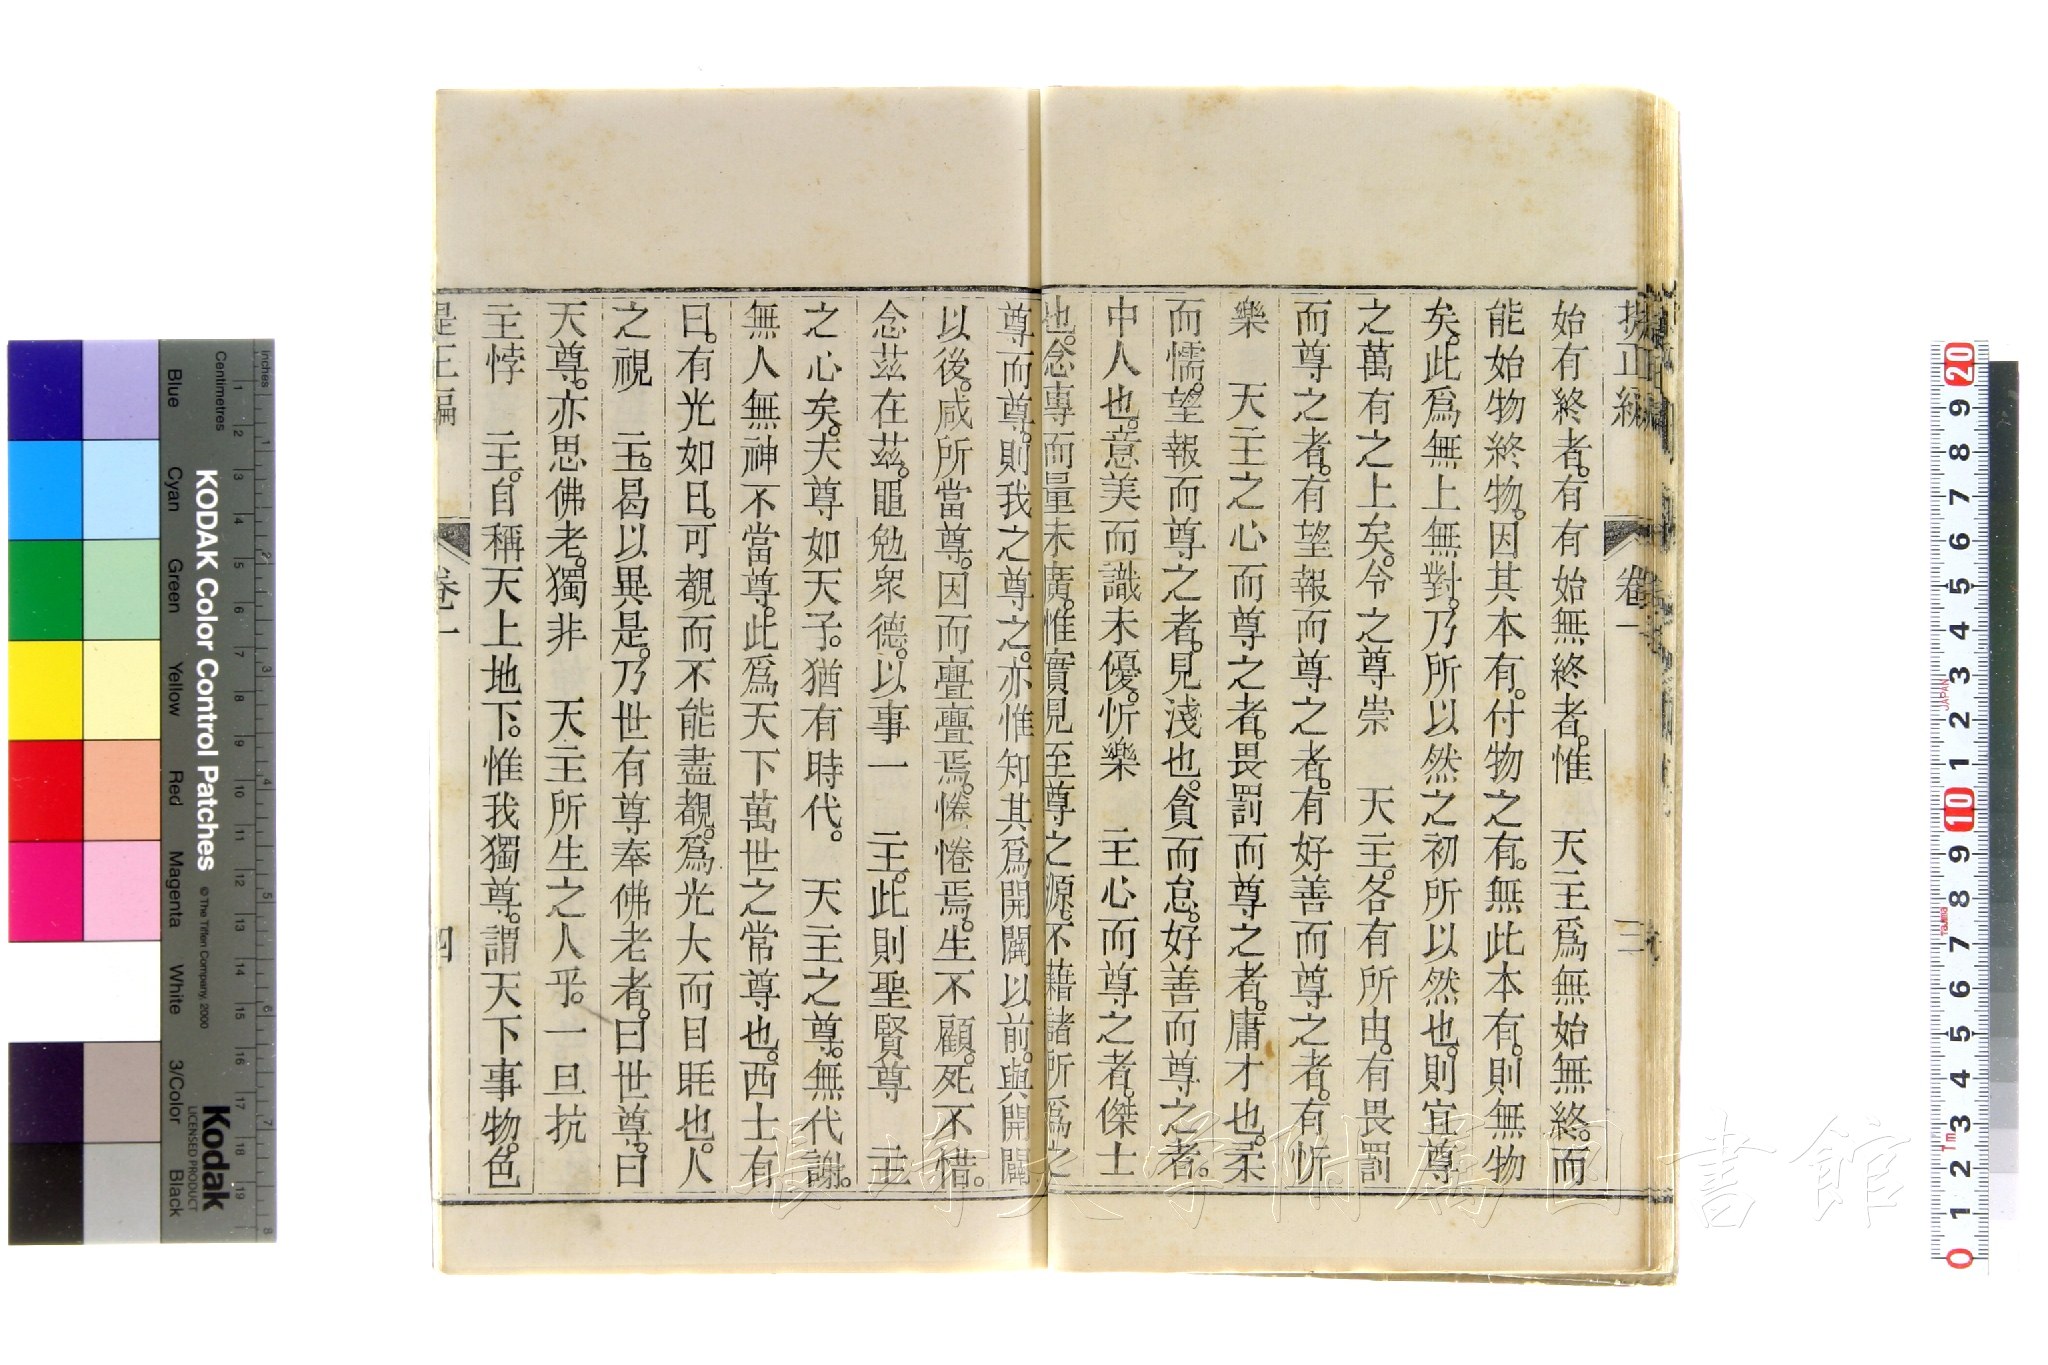 始有終者。有有始無終者。惟　天主爲無始無終。而
能始物終物。因其本有。付物之有。無此本有。則無物
矣。此爲無上無對。乃所以然之初所以然也。則宜尊
之萬有之上矣。令之尊崇　天主。各有所由。有畏罰
而尊之者。有望報而尊之者。有好善而尊之者。有忻
樂　天主之心而尊之者。畏罰而尊之者。庸才也。柔
而懦。望報而尊之者。見淺也。貪而怠。好善而尊之者。
中人也。意美而識未優。忻樂　主心而尊之者。傑士
也。念專而量未廣。惟實見至尊之源。不藉諸所爲之
卷一
三
尊而尊。則我之尊之。亦惟知其爲開闢以前。與開闢
以後。咸所當尊。因而亹亹焉。惓惓焉。生不顧。死不惜。
念茲在茲。黽勉衆德。以事一　主。此則聖賢尊　主
之心矣。夫尊如天子。猶有時代。　天主之尊。無代謝。
無人無神不當尊。此爲天下萬世之常尊也。西士有
曰。有光如日。可覩而不能盡覩。爲光大而目眊也。人
之視　主。曷以異是。乃世有尊奉佛老者。曰世尊。曰
天尊。亦思佛老。獨非　天主所生之人乎。一旦抗
主悖　主。自稱天上地下。惟我獨尊。謂天下事物。色
卷一
四
KODAK Color Control Patches
© The Tiffen Company, 2000
Kodak
LICENSED PRODUCT
Inches
Centimetres
Blue
Cyan
Green
Yellow
Red
Magenta
White
3/Color
Black
1 2 3 4 5 6 7 8 9 10 11 12 13 14 15 16 17 18 19
1 2 3 4 5 6 7 8
20 9 8 7 6 5 4 3 2 1 10 9 8 7 6 5 4 3 2 1 0
JAPAN
長崎大学附属図書館